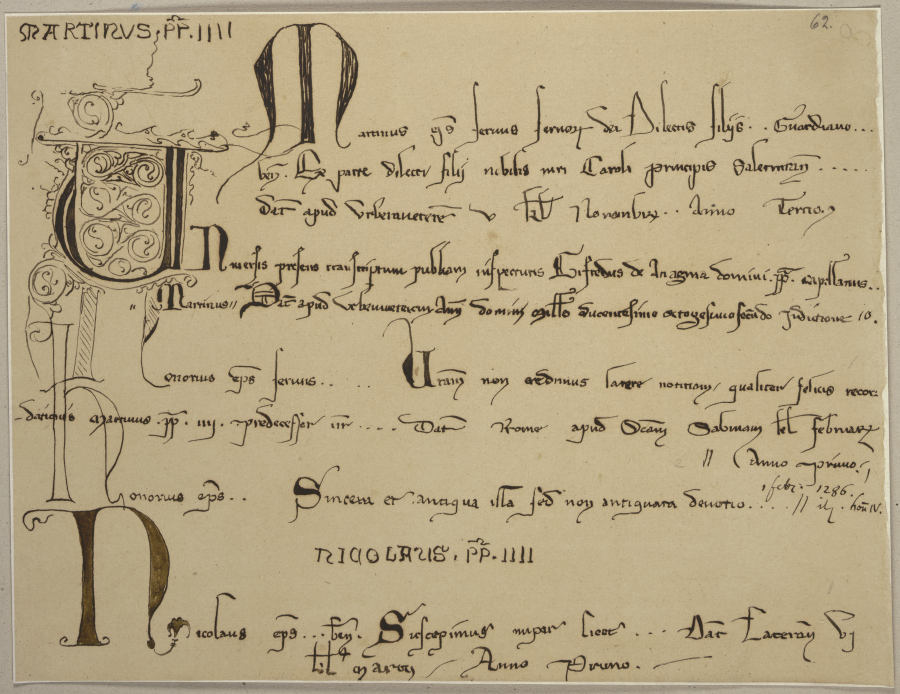 MARTINUS, PP. IIII
62.
Martinus eps servus servor dei Dilectis filijs.. Guardiano...
ben. Ex parte dilecti filij nobilis viri Caroli principis Salernitan.....
Dat apud Urbemveterem v kl Novembr.. Anno Tercio
Universis presens transcriptum publicum inspecturis Gifredus de Anagnia domini. pp. capellanus..
"Martinus" Dat apud Urbemveterem Ann domini Mill ducentesimo octogesimo secundo Indictione 10.
Honorius eps servus.. .... Uram non credimus latere notitiam, qualiter felicis recor-
dationis Martinus. pp. IIII. predecessor nr .... Dat Rome apud Scam Sabinam kl Februar
// Anno primo.
1 febr. 1286.
Honorius eps.. Sincera et antiqua illa sed non antiquata devotio..... // hon IV.
NICOLAUS, PP. IIII
Nicolaus eps... ben. Suscepimus nuper licet ... Dat Lateran VI
kl marcij Anno Primo.